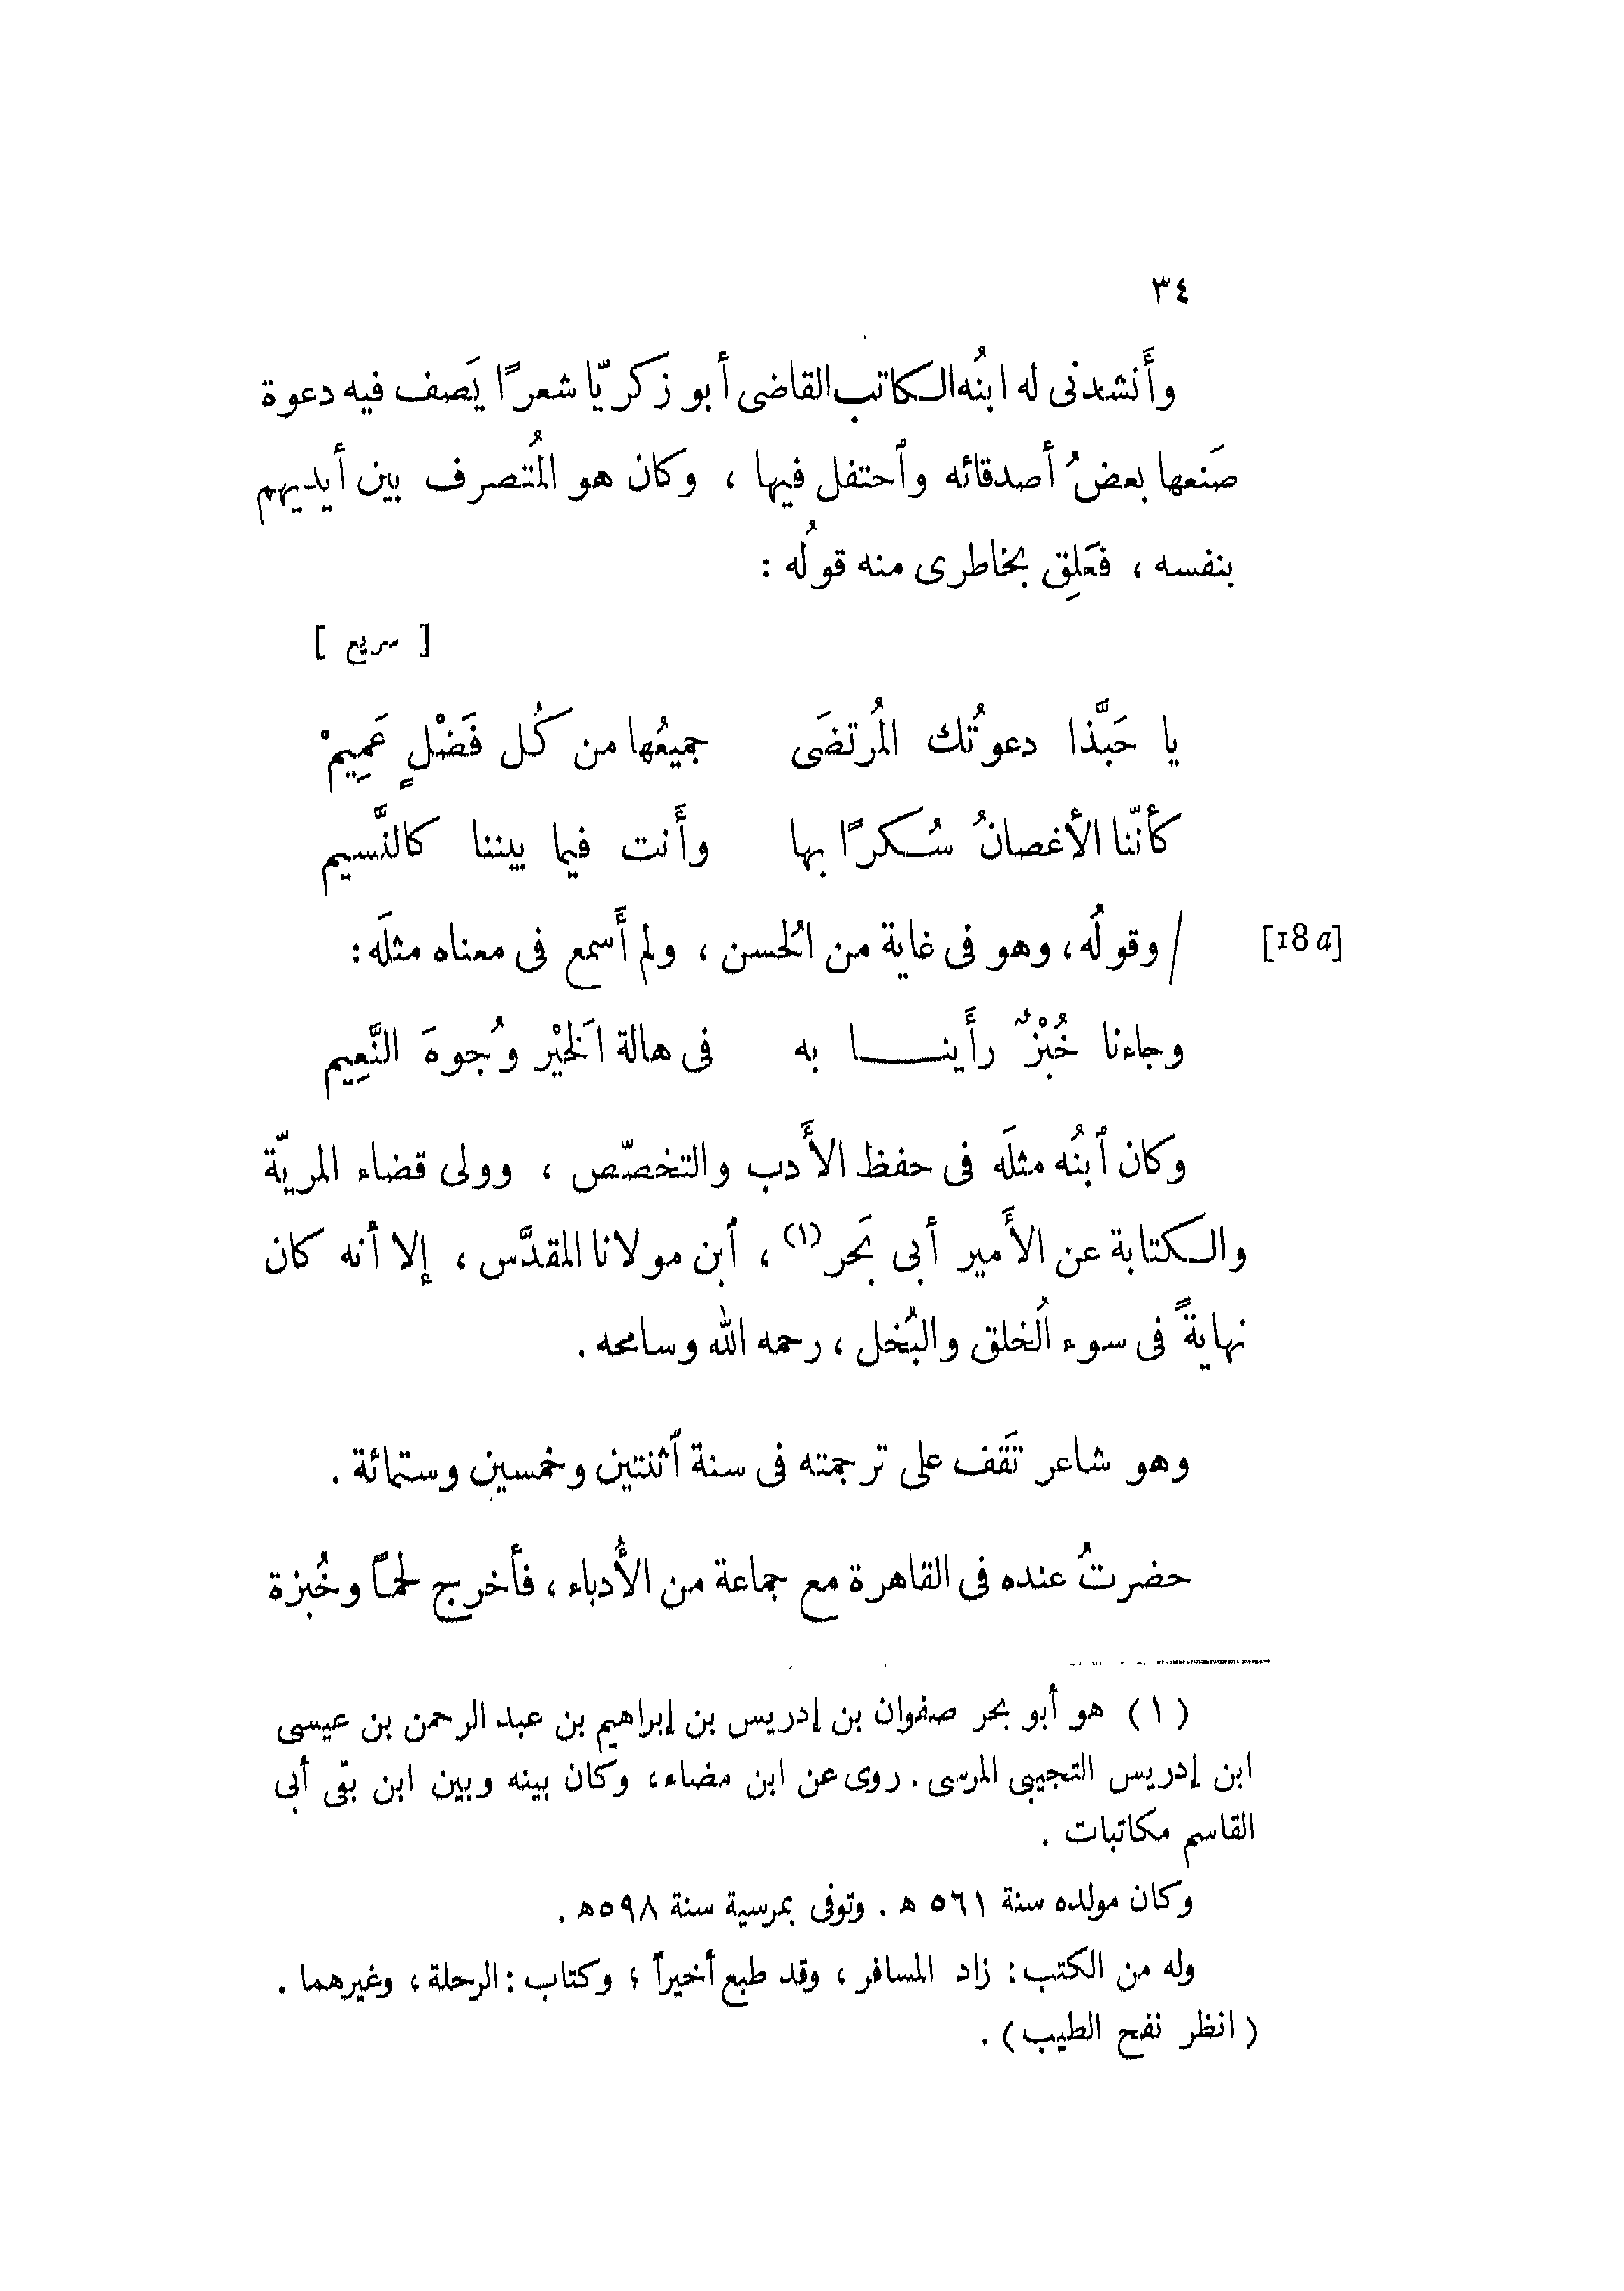 ٣٤
وأَنشدنى له ابنُه الكاتب القاضى أبو زكريّا شعرًا يَصف فيه دعوة
صَنعها بعضُ أصدقائه وٱحتفل فيها ، وكان هو المُتصرف بين أيديهم
بنفسه ، فعَلِق بخاطرى منه قولُه :
[ سريع ]
يا حَبَّذا دعوتُك المُرتضَى جميعُها من كُل فَضْلٍ عَمِيمْ
كأنّنا الأغصانُ سُكرًا بها وأَنت فيما بيننا كالنَّسيم
[18 a] / وقولُه، وهو فى غاية من الحُسن ، ولم أَسمع فى معناه مثلَه :
وجاءنا خُبْزٌ رأَينا به فى هالة الخَيْر وُجوهَ النَّعِيم
وكان ٱبنُه مثلَه فى حفظ الأَدب والتخصّص ، وولى قضاء المريّة
والكتابة عن الأَمير أبى بَحر (١) ، ٱبن مولانا المقدَّس ، إلا أنه كان
نهايةً فى سوء الخُلق والبُخل ، رحمه الله وسامحه .
وهو شاعر تَقَف على ترجمته فى سنة ٱثنتين وخمسين وستمائة .
حضرتُ عنده فى القاهرة مع جماعة من الأُدباء ، فأخرج لحمًا وخُبزة
(١) هو أبو بحر صفوان بن إدريس بن إبراهيم بن عبد الرحمن بن عيسى
ابن إدريس التجيبى المرسى . روى عن ابن مضاء، وكان بينه وبين ابن بقى أبى
القاسم مكاتبات .
وكان مولده سنة ٥٦١ ه . وتوفى بمرسية سنة ٥٩٨ه .
وله من الكتب : زاد المسافر ، وقد طبع أخيراً ؛ وكتاب : الرحلة ، وغيرهما .
( انظر نفح الطيب ) .